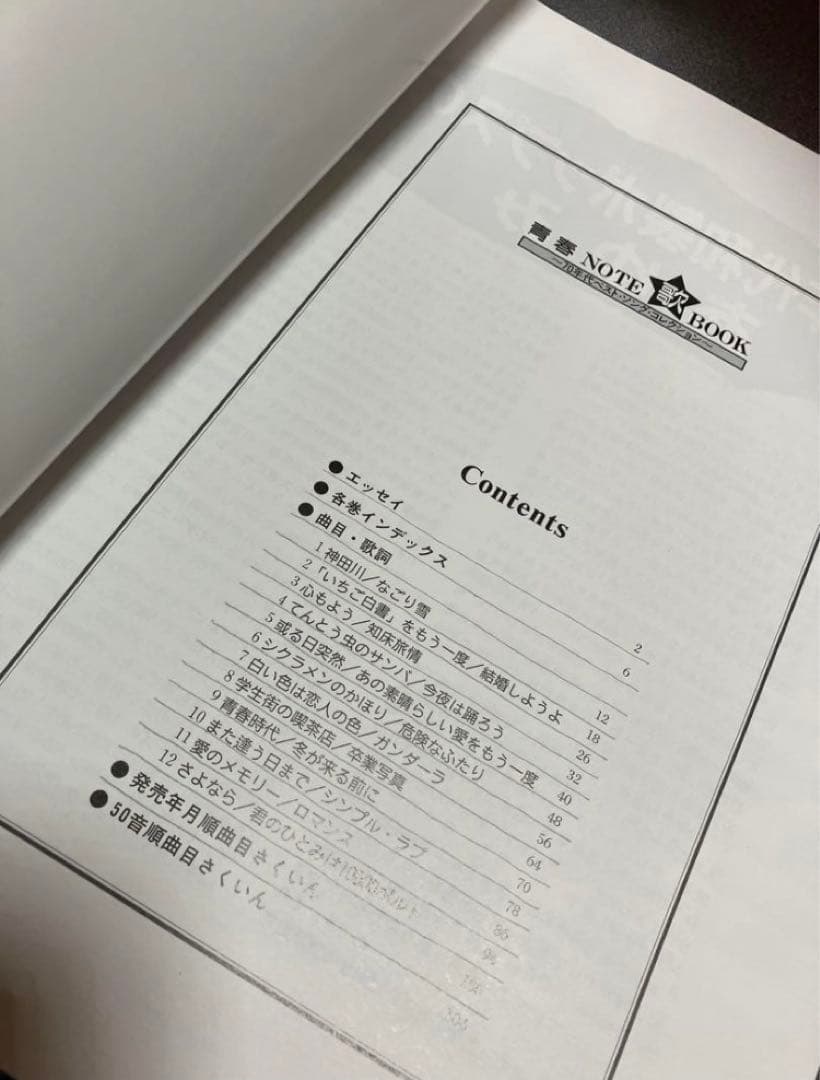 青春 NOTE 歌 BOOK
〜70年代ベスト・ソング・コレクション〜
Contents
●エッセイ 2
●各巻インデックス 6
●曲目・歌詞
1 神田川／なごり雪 12
2 「いちご白書」をもう一度／結婚しようよ 18
3 心もよう／知床旅情 26
4 てんとう虫のサンバ／今夜は踊ろう 32
5 或る日突然／あの素晴らしい愛をもう一度 40
6 シクラメンのかほり／危険なふたり 48
7 白い色は恋人の色／ガンダーラ 56
8 学生街の喫茶店／卒業写真 64
9 青春時代／冬が来る前に 70
10 また逢う日まで／シンプル・ラブ 78
11 愛のメモリー／ロマンス 86
12 さよなら／君のひとみは
●発売年月順曲目さくいん
●50音順曲目さくいん